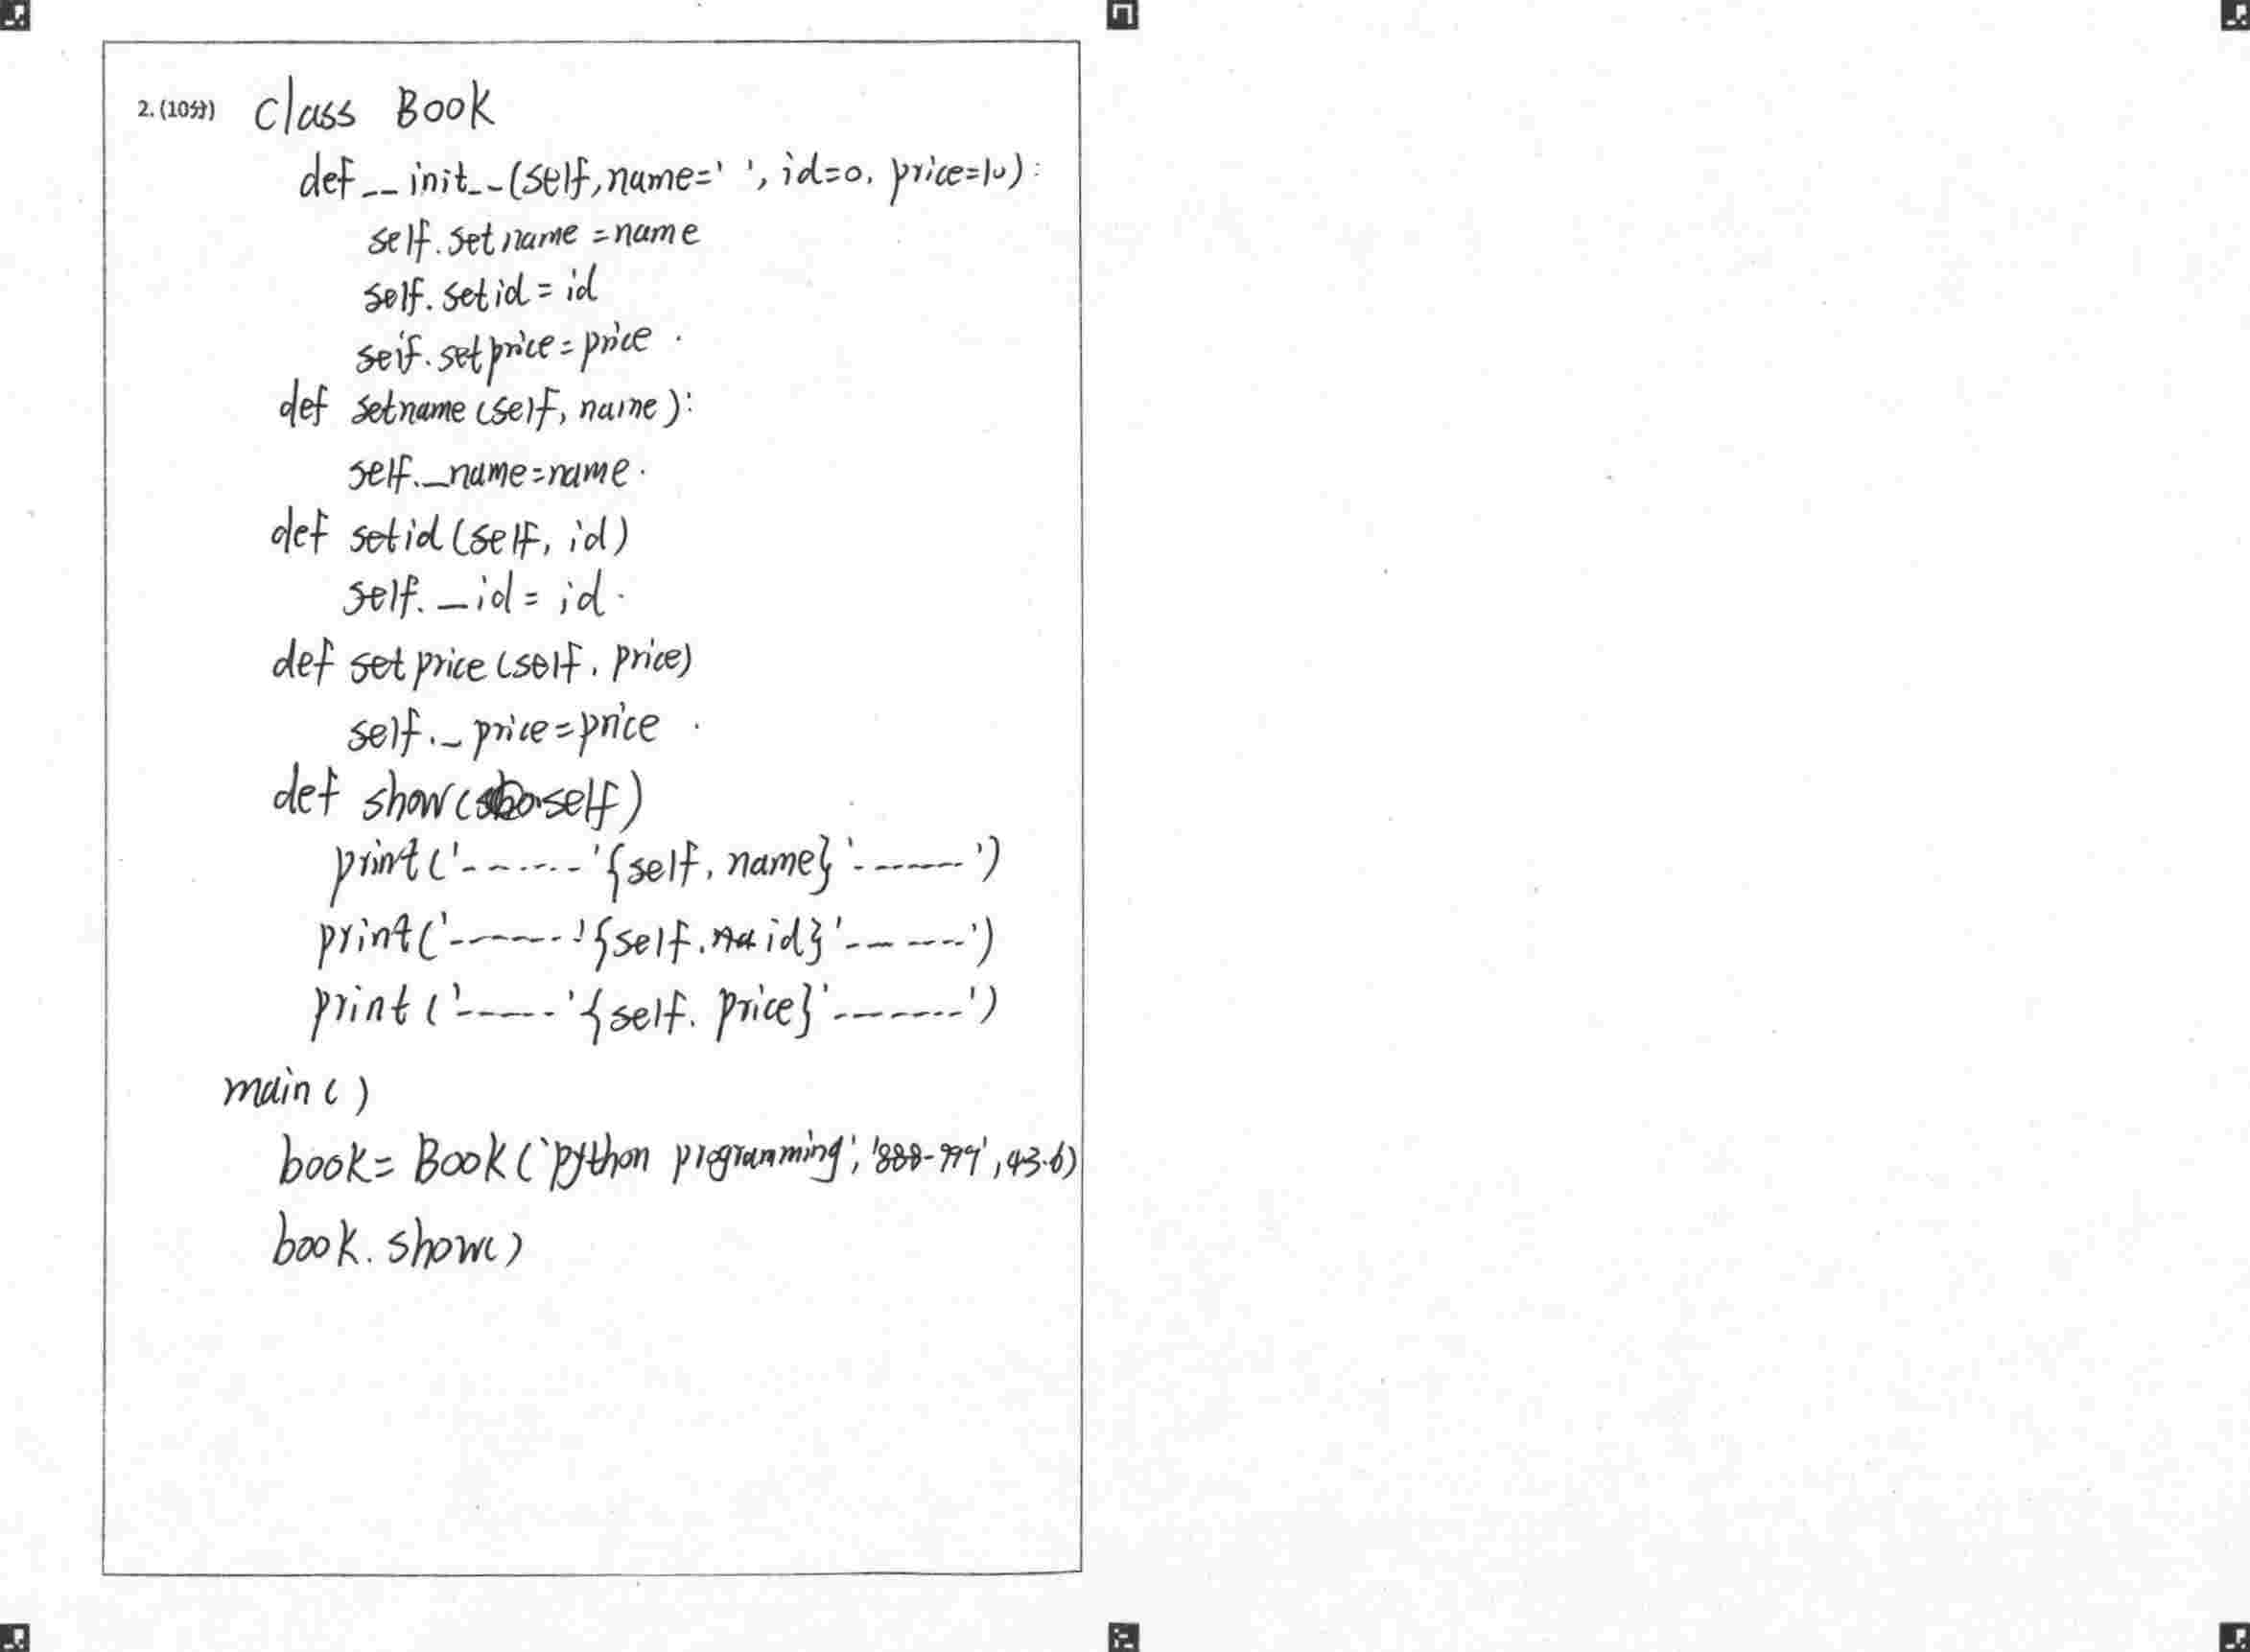 2.(10分) class Book
def__init__(self,name=' ', id=0, price=10):
self.setname=name
self.setid=id
seif.setprice=price.
def setname(self, name):
self._name=name.
def setid(self, id)
self._id=id.
def setprice(self, price)
self._price=price.
def show(self)
print('-------'{self.name}'-------')
print('-------'{self.id}'-------')
print('-----'{self.price}'-------')
main()
book=Book('python programming','888-999',43.6)
book.show()